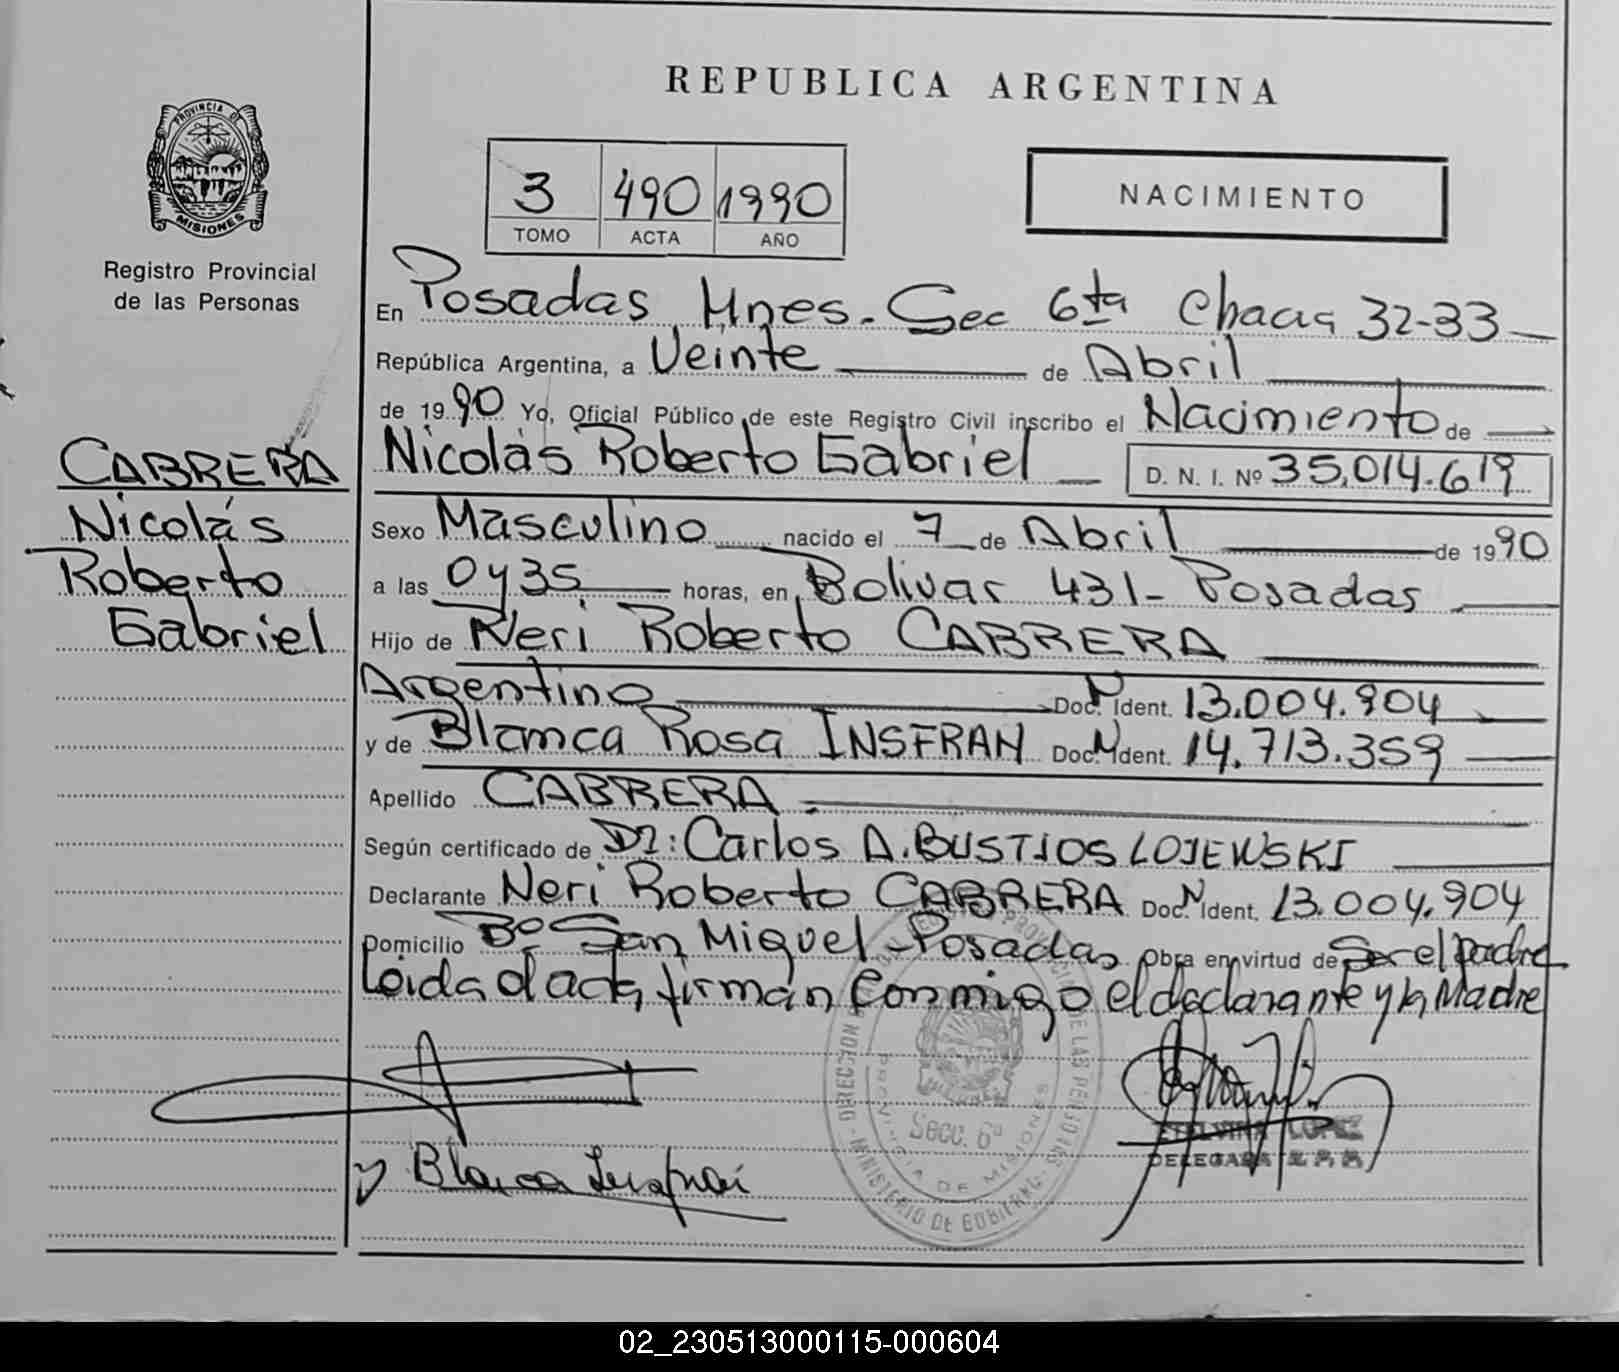 REPUBLICA ARGENTINA
PROVINCIA DE
MISIONES
Registro Provincial
de las Personas
3 490 1990
TOMO ACTA AÑO
NACIMIENTO
En Posadas Mnes. Sec 6ta Chacra 32-33
República Argentina, a Veinte de Abril
de 1990 Yo, Oficial Público de este Registro Civil inscribo el Nacimiento de
Nicolás Roberto Gabriel D. N. I. Nº 35.014.619
CABRERA
Nicolás
Roberto
Gabriel
Sexo Masculino nacido el 7 de Abril de 1990
a las 0y35 horas, en Bolivar 431- Posadas
Hijo de Neri Roberto CABRERA
Argentino Doc. N Ident. 13.004.904
y de Blanca Rosa INSFRAN Doc. N Ident. 14.713.359
Apellido CABRERA
Según certificado de Dr: Carlos A. BUSTIOS LOJEWSKI
Declarante Neri Roberto CABRERA Doc. N Ident. 13.004.904
Domicilio Bº San Miguel - Posadas Obra en virtud de Ser el padre
Leida el acta firman Conmigo el declarante y la Madre
Secc. 6ª
PROVINCIA DE MISIONES
ETELVINA LOPEZ
DELEGADA
02_230513000115-000604